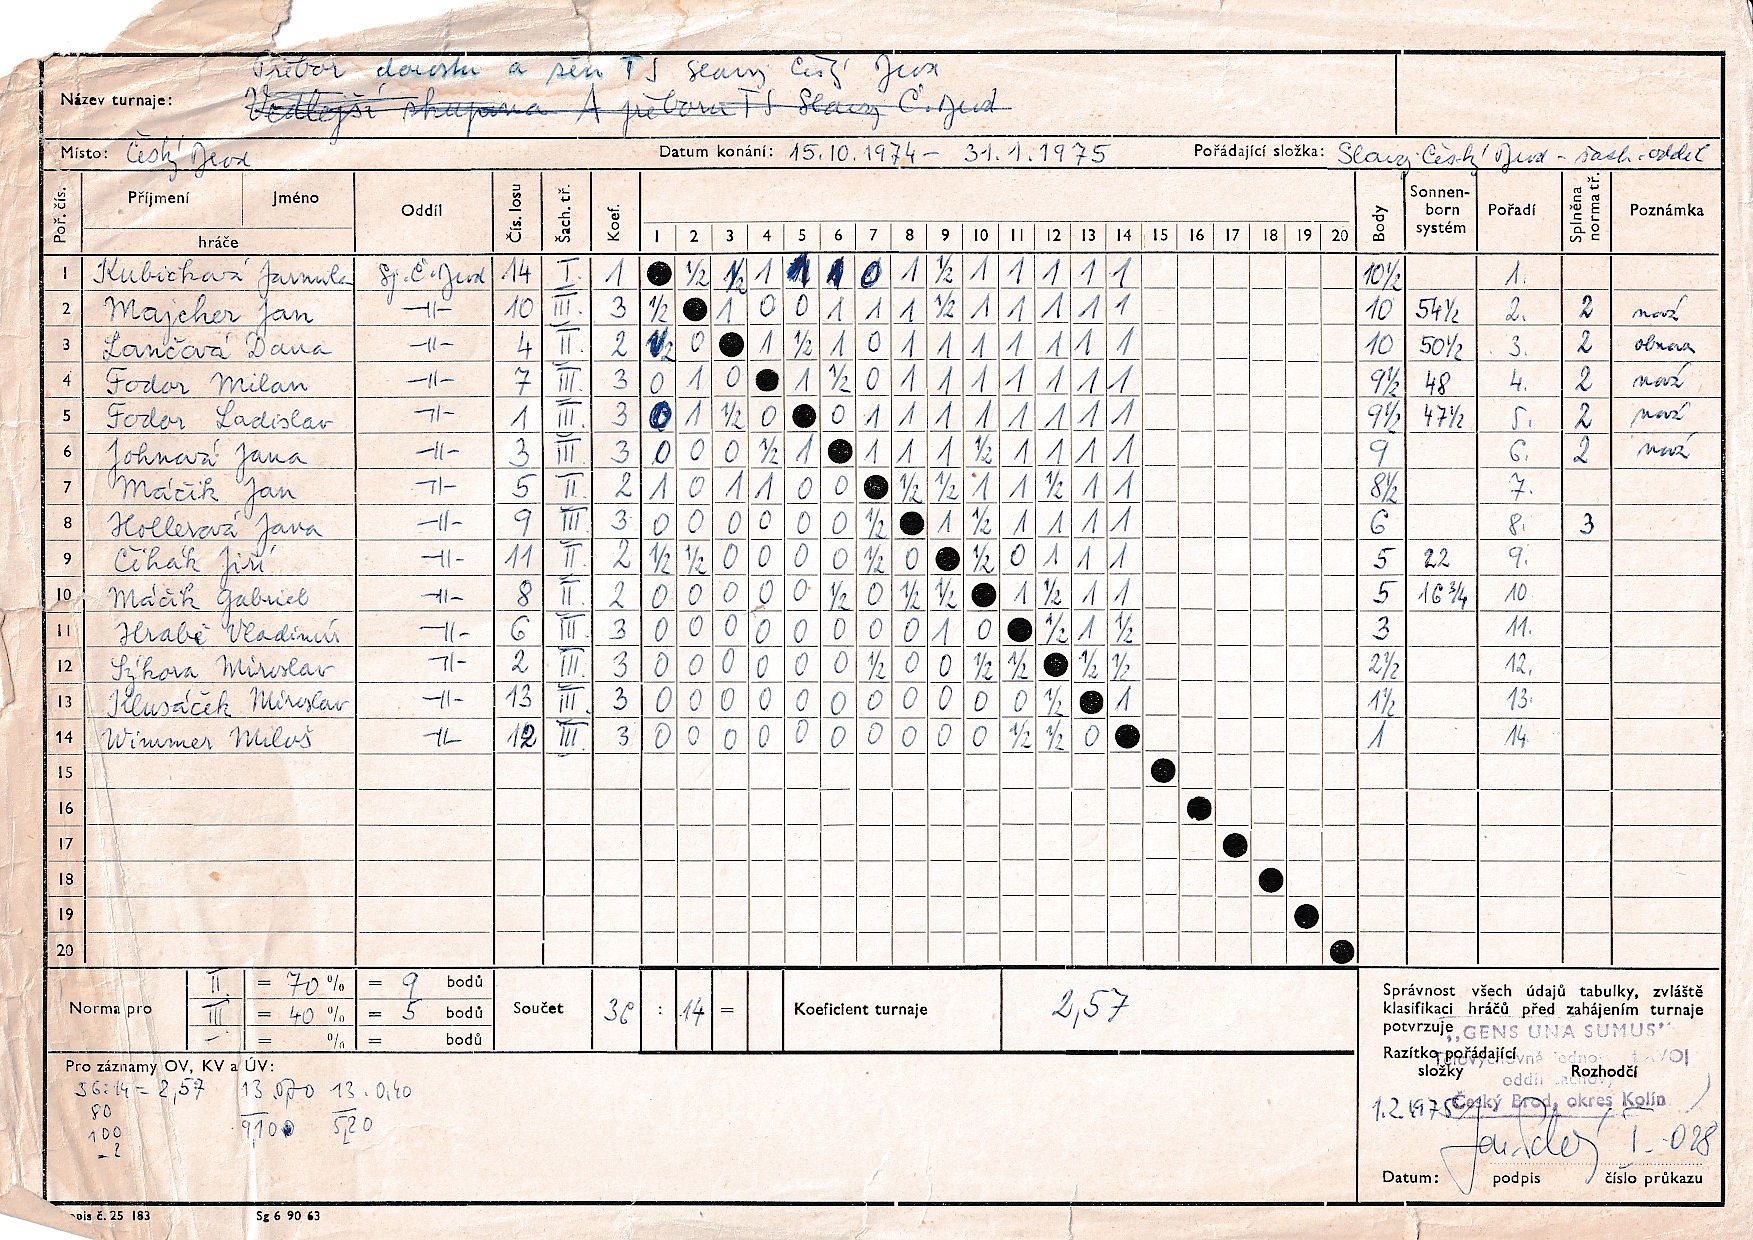 Přebor dorostu a žen TJ Slavoj Český Brod
Název turnaje: Vedlejší skupina A přeboru TJ Slavoj Č. Brod
Místo: Český Brod Datum konání: 15.10.1974 – 31.1.1975 Pořádající složka: Slavoj Český Brod - šach. oddíl
Poř. čís. Příjmení Jméno hráče Oddíl Čís. losu Šach. tř. Koef. 1 2 3 4 5 6 7 8 9 10 11 12 13 14 15 16 17 18 19 20 Body Sonnenborn systém Pořadí Splněna norma tř. Poznámka
1 Kubíčková Jarmila Sj. Č. Brod 14 I. 1 ● ½ ½ 1 1 1 0 1 ½ 1 1 1 1 1 10½ 1.
2 Majcher Jan -II- 10 III. 3 ½ ● 1 0 0 1 1 1 ½ 1 1 1 1 1 10 54½ 2. 2 nová
3 Lančová Dana -II- 4 II. 2 ½ 0 ● 1 ½ 1 0 1 1 1 1 1 1 1 10 50½ 3. 2 obnova
4 Fodor Milan -II- 7 III. 3 0 1 0 ● 1 ½ 0 1 1 1 1 1 1 1 9½ 48 4. 2 nová
5 Fodor Ladislav -II- 1 III. 3 0 1 ½ 0 ● 0 1 1 1 1 1 1 1 1 9½ 47½ 5. 2 nová
6 Johnová Jana -II- 3 III. 3 0 0 0 ½ 1 ● 1 1 1 ½ 1 1 1 1 9 6. 2 nová
7 Máčik Jan -II- 5 II. 2 1 0 1 1 0 0 ● ½ ½ 1 1 ½ 1 1 8½ 7.
8 Hollerová Jana -II- 9 III. 3 0 0 0 0 0 0 ½ ● 1 ½ 1 1 1 1 6 8. 3
9 Čihák Jiří -II- 11 II. 2 ½ ½ 0 0 0 0 ½ 0 ● ½ 0 1 1 1 5 22 9.
10 Máčik Gabriel -II- 8 II. 2 0 0 0 0 0 ½ 0 ½ ½ ● 1 ½ 1 1 5 16¾ 10
11 Hrabě Vladimír -II- 6 III. 3 0 0 0 0 0 0 0 0 1 0 ● ½ 1 ½ 3 11.
12 Sýkora Miroslav -II- 2 III. 3 0 0 0 0 0 0 ½ 0 0 ½ ½ ● ½ ½ 2½ 12.
13 Klusáček Miroslav -II- 13 III. 3 0 0 0 0 0 0 0 0 0 0 0 ½ ● 1 1½ 13.
14 Wimmer Miloš -II- 12 III. 3 0 0 0 0 0 0 0 0 0 0 ½ ½ 0 ● 1 14.
15
16
17
18
19
20
Norma pro II. = 70 % = 9 bodů
III = 40 % = 5 bodů
= % = bodů
Součet 36 : 14 = Koeficient turnaje 2,57
Správnost všech údajů tabulky, zvláště
klasifikaci hráčů před zahájením turnaje
potvrzuje „GENS UNA SUMUS"
Razítko pořádající
složky Rozhodčí
Český Brod, okres Kolín
1.2.1975 I-028
Datum: podpis číslo průkazu
Pro záznamy OV, KV a ÚV:
36:14 = 2,57 13.0,70 13.0,40
80 9,100 5,20
100
-2
opis č. 25 183 Sg 6 90 63